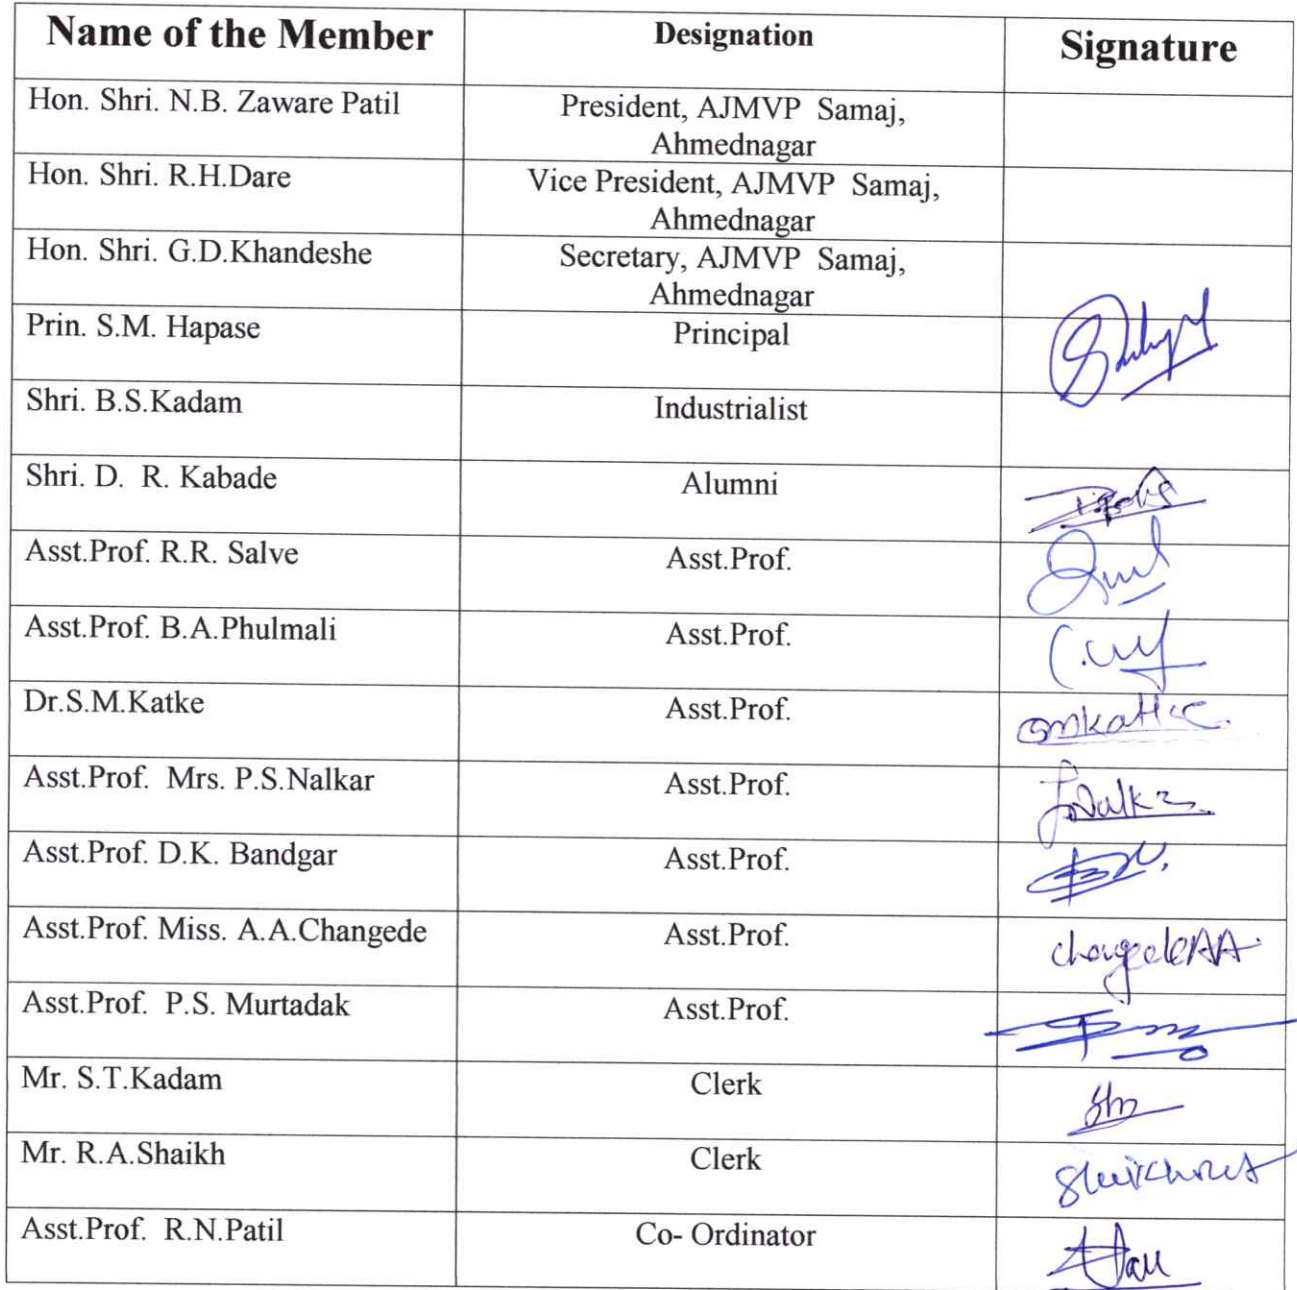 Name of the Member Designation Signature
Hon. Shri. N.B. Zaware Patil President, AJMVP Samaj,
Ahmednagar
Hon. Shri. R.H.Dare Vice President, AJMVP Samaj,
Ahmednagar
Hon. Shri. G.D.Khandeshe Secretary, AJMVP Samaj,
Ahmednagar
Prin. S.M. Hapase Principal
Shri. B.S.Kadam Industrialist
Shri. D. R. Kabade Alumni
Asst.Prof. R.R. Salve Asst.Prof.
Asst.Prof. B.A.Phulmali Asst.Prof.
Dr.S.M.Katke Asst.Prof.
Asst.Prof. Mrs. P.S.Nalkar Asst.Prof.
Asst.Prof. D.K. Bandgar Asst.Prof.
Asst.Prof. Miss. A.A.Changede Asst.Prof. changedeAA
Asst.Prof. P.S. Murtadak Asst.Prof.
Mr. S.T.Kadam Clerk
Mr. R.A.Shaikh Clerk
Asst.Prof. R.N.Patil Co- Ordinator